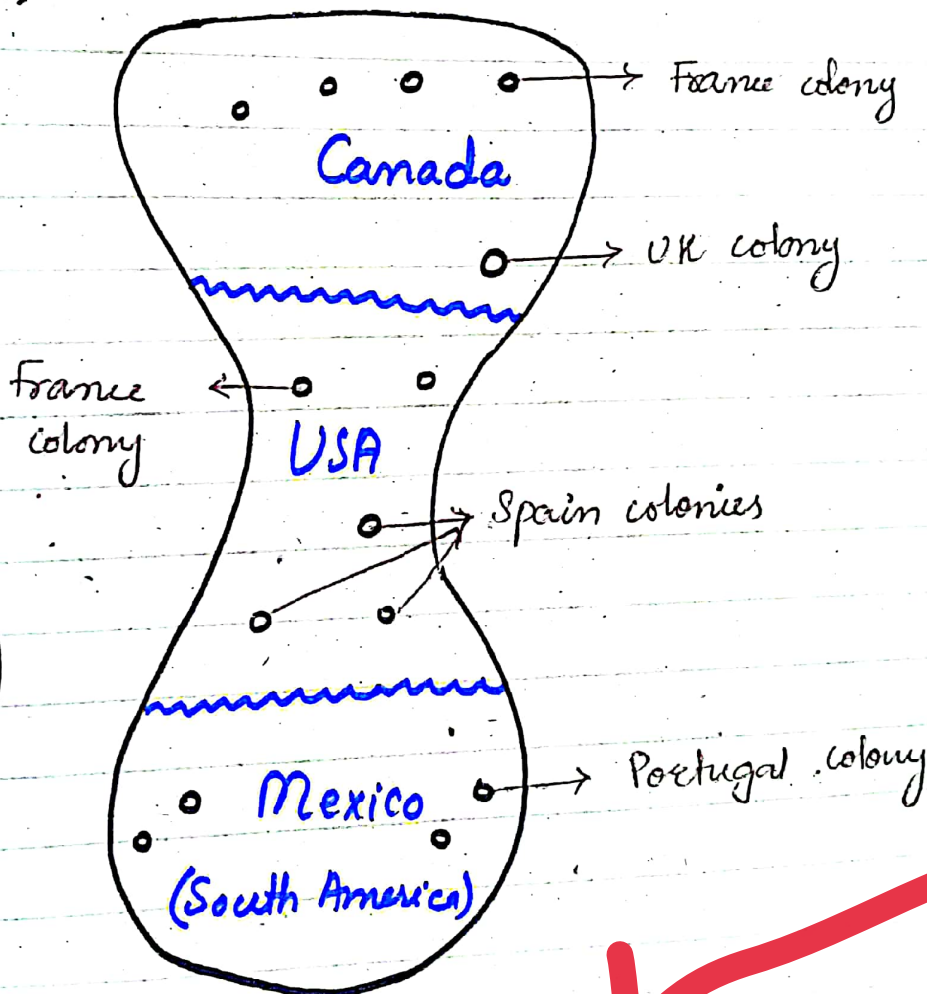 France colony
Canada
UK colony
France
colony
USA
Spain colonies
Mexico
Portugal colony
(South America)